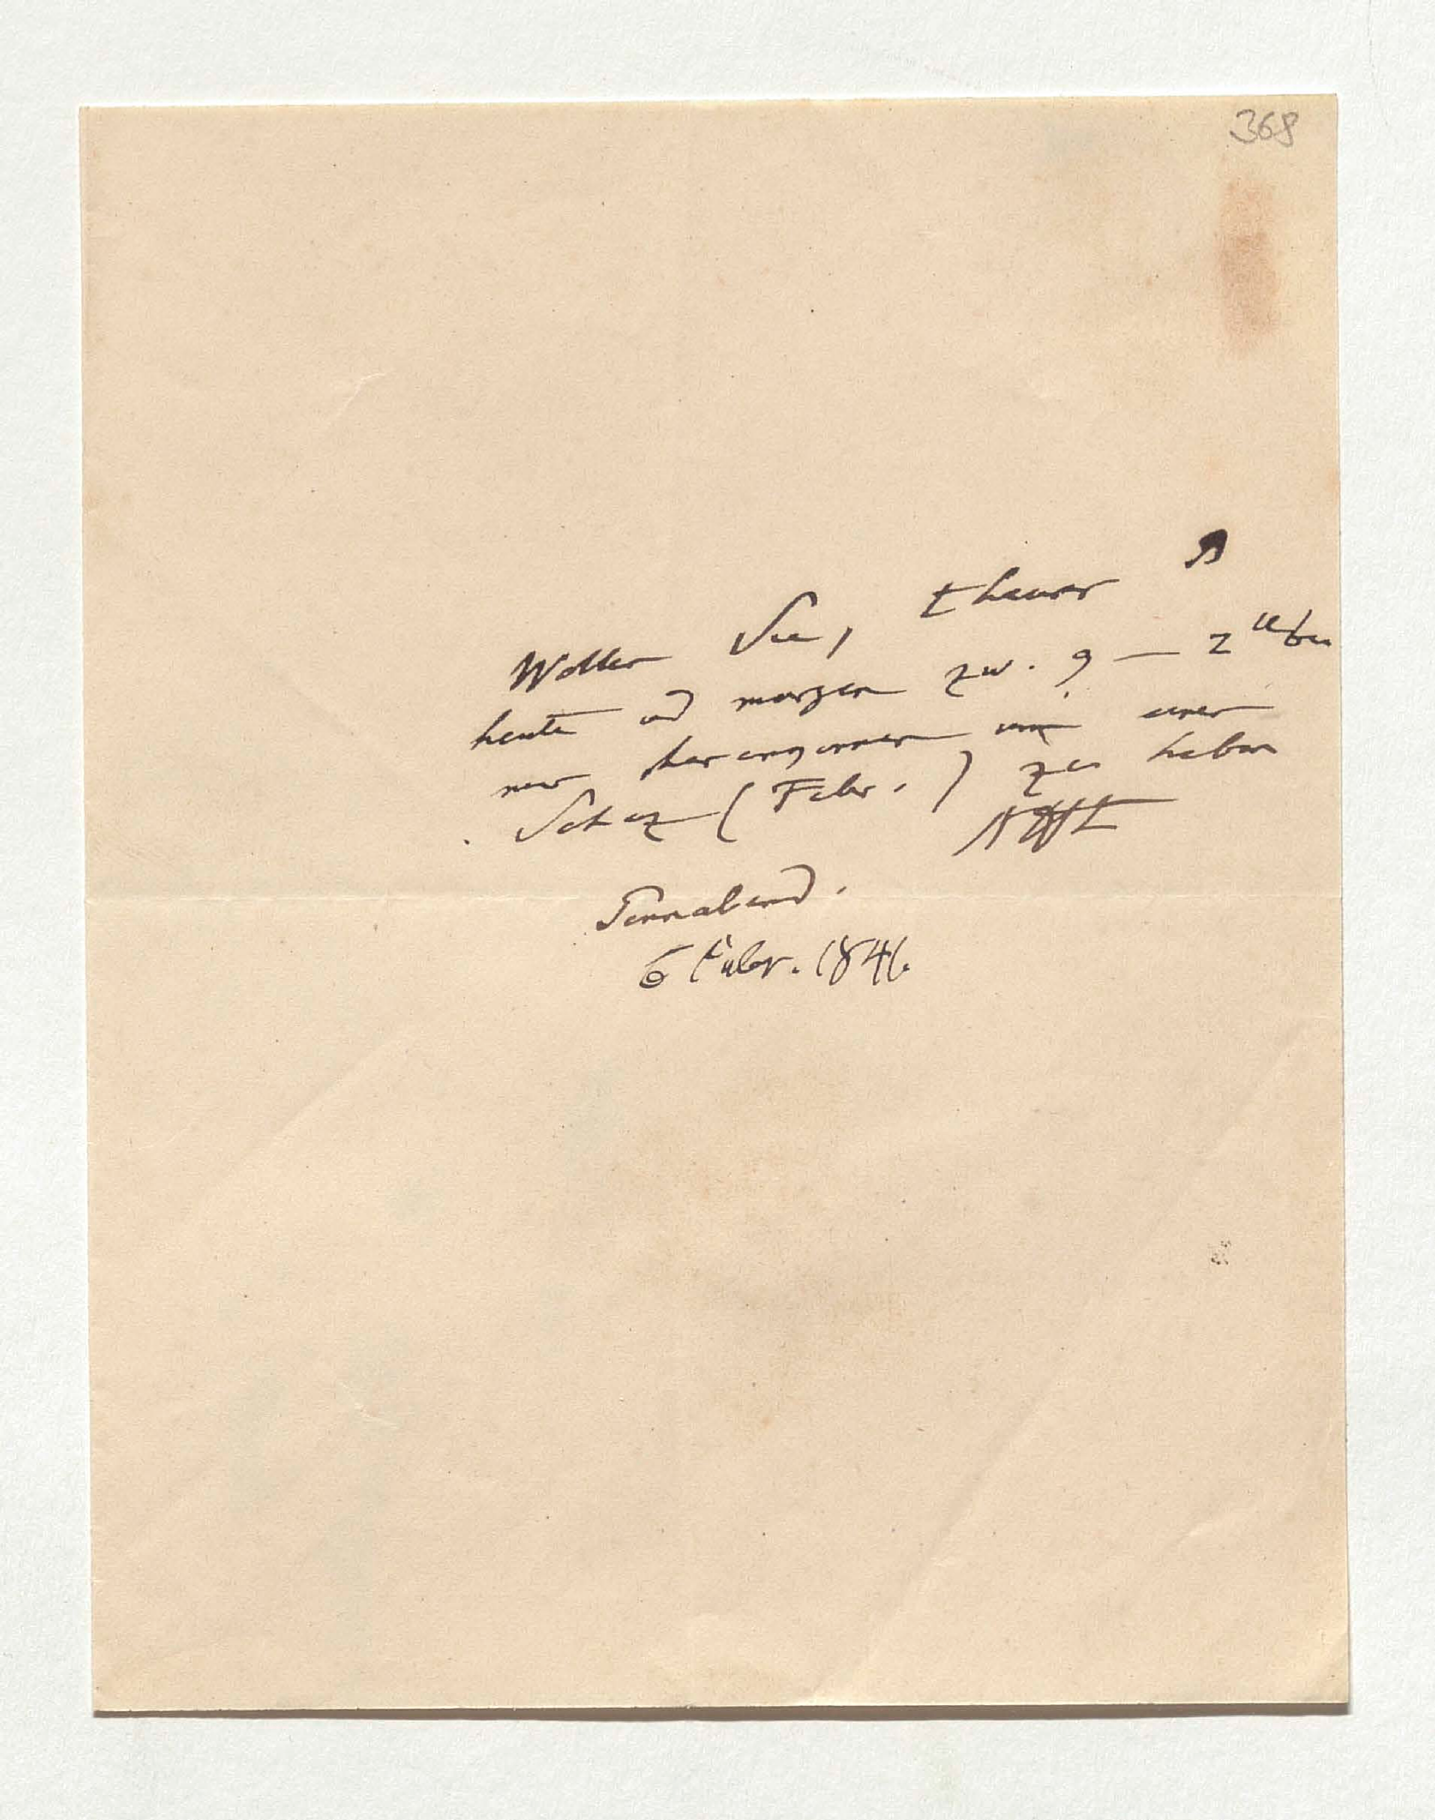 368
Wollen Sie, theurer B
heute und morgen zw. 9 — 2 Uhr
nur um
Schaz (Febr.) zu haben
AHt
Sonnabend.
6 Febr. 1841.